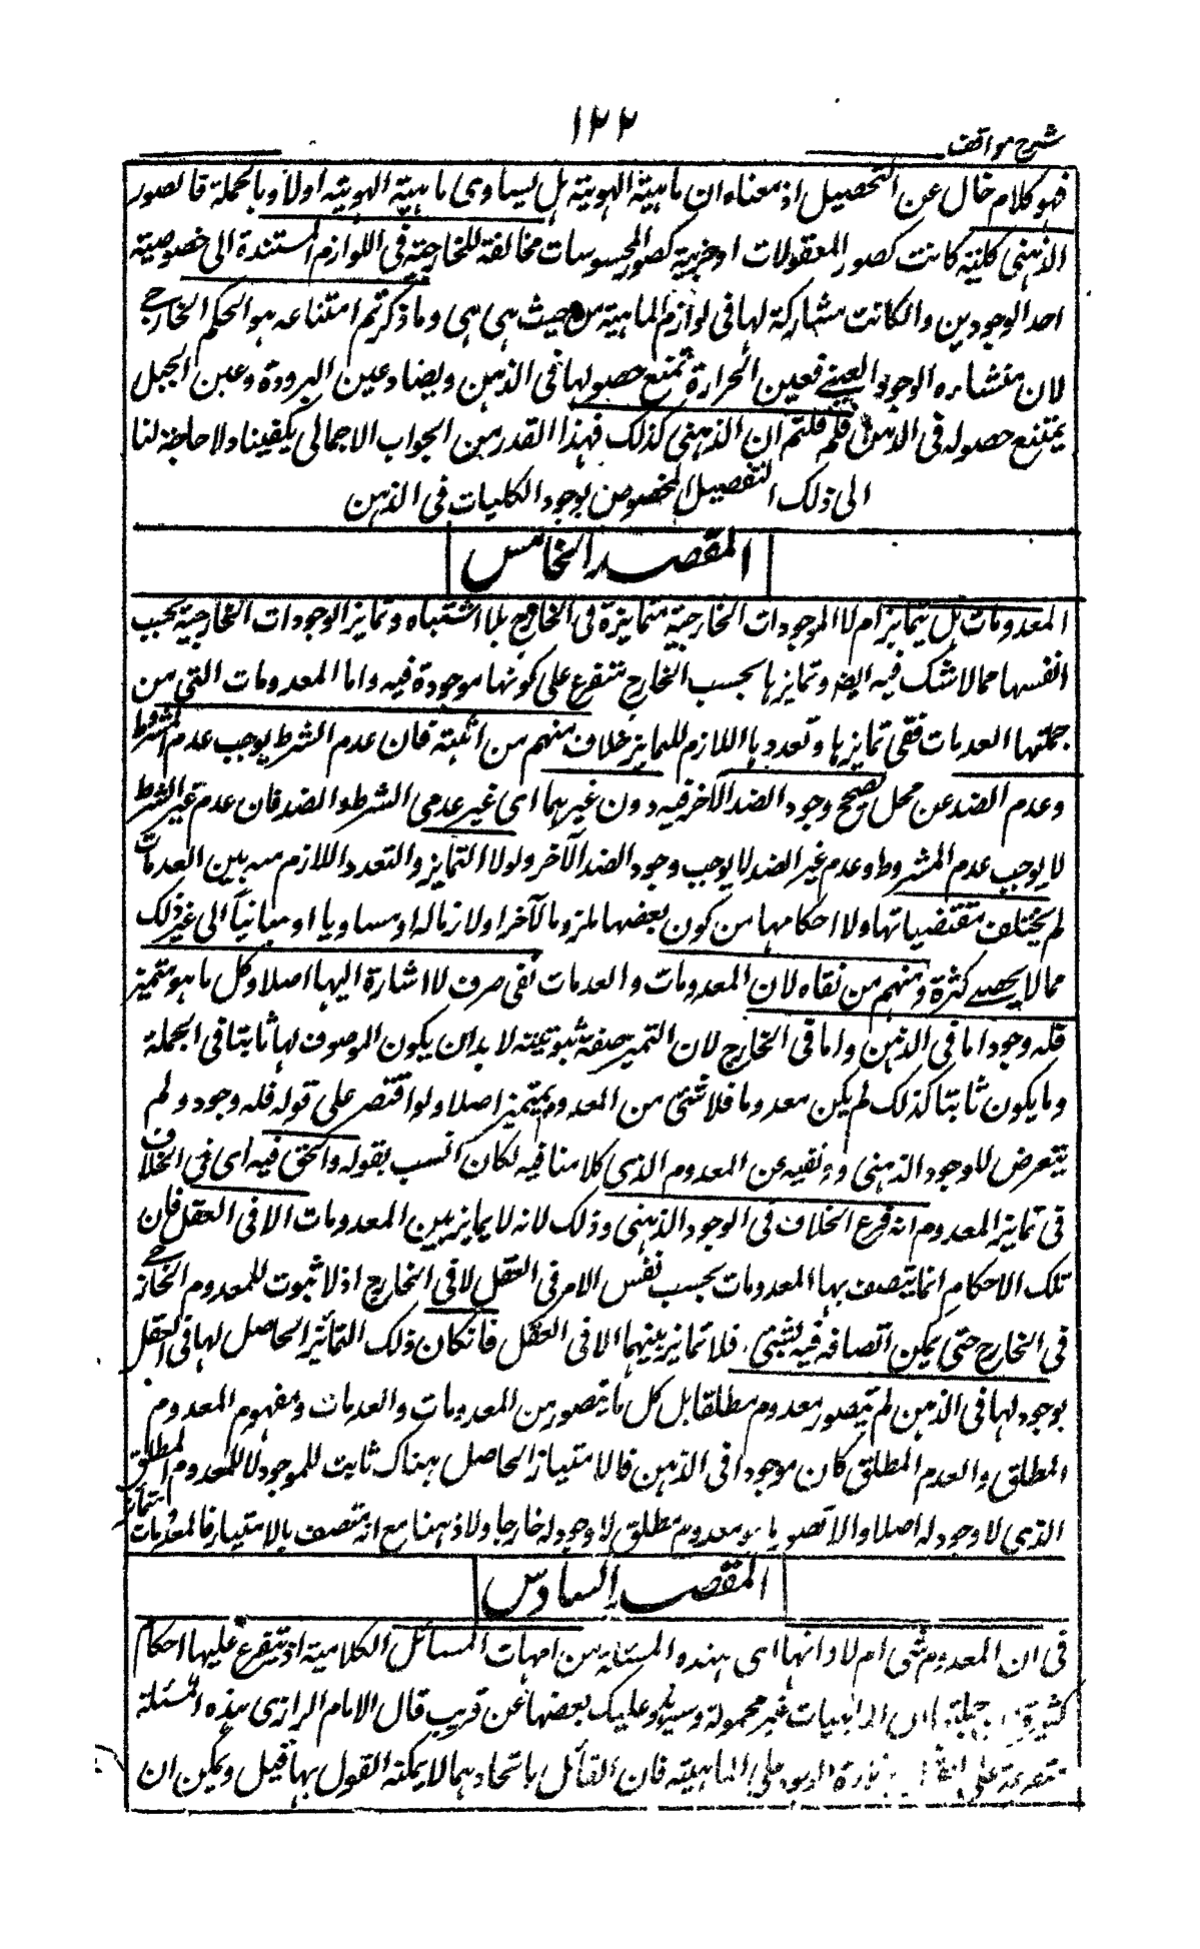 ١٢٢
شرح مواقف
فهو كلام خال عن التحصيل اذ معناه ان ماهية الهوية هل يساوى ماهية الهوية اولا وبالجملة فالصور
الذهنى كلية كانت كصور المعقولات او جزئية كصور المحسوسات مخالفة للخارجية فى اللوازم المستندة الى خصوصية
احد الوجودين وانكانت مشاركة لها فى لوازم الماهية من حيث هى هى وما ذكرتم امتناعه هو الحكم الخارجى
لان منشاءه الوجود العينى فعين الحرارة تمتنع حصولها فى الذهن ويضاد عين البرودة وعين الجبل
يمتنع حصوله فى الذهن فلم قلتم ان الذهنى كذلك فهذا القدر من الجواب الاجمالى يكفينا ولا حاجة لنا
الى ذلك التفصيل المخصوص بوجود الكليات فى الذهن
المقصد الخامس
المعدومات هل يتمايز ام لا الموجودات الخارجية متمايزة فى الخارج بلا اشتباه وتمايز الوجودات الخارجية بحسب
انفسها مما لا شك فيه ايضا وتمايزها بحسب الخارج متفرع على كونها موجودة فيه واما المعدومات التى من
جملتها العدمات ففى تمايزها وتعددها اللازم للتمايز خلاف منهم من اثبته فان عدم الشرط يوجب عدم المشروط
وعدم الضد عن محل يصحح وجود الضد الآخر فيه دون غيرهما اى غير عدمى الشرط والضد فان عدم غير الشرط
لا يوجب عدم المشروط وعدم غير الضد لا يوجب وجود الضد الآخر ولولا التمايز والتعدد اللازم منه بين العدمات
لم يختلف مقتضياتها ولا احكامها من كون بعضها ملزوما لآخر او لازما له او مساويا او مباينا الى غير ذلك
مما لا يحصى كثرة ومنهم من نفاه لان المعدومات والعدمات نفى صرف لا اشارة اليها اصلا وكل ما هو متميز
فله وجود اما فى الذهن واما فى الخارج لان التميز صفة ثبوتية لا بد ان يكون الموصوف بها ثابتا فى الجملة
وما يكون ثابتا كذلك لم يكن معدوما فلا شئ من المعدوم بمتميز اصلا ولو اقتصر على قوله فله وجود ولم
يتعرض للوجود الذهنى ونفيه عن المعدوم الذى كلامنا فيه لكان انسب بقوله والحق فيه اى فى الخلاف
فى تمايز المعدوم انه فرع الخلاف فى الوجود الذهنى وذلك لانه لا يمايز بين المعدومات الا فى العقل فان
تلك الاحكام انما يتصف بها المعدومات بحسب نفس الامر فى العقل لا فى الخارج اذ لا ثبوت للمعدوم الخارجى
فى الخارج حتى يمكن اتصافه فيه بشئ فلا تمايز بينهما الا فى العقل فانكان ذلك التمائز الحاصل لها فى العقل
بوجود لها فى الذهن لم يتصور معدوم مطلقا بل كل ما يتصور من المعدومات والعدمات ومفهوم المعدوم
المطلق والعدم المطلق كان موجودا فى الذهن فالامتياز الحاصل هناك ثابت للموجود لا للمعدوم المطلق
الذى لا وجود له اصلا والا تصور ما هو معدوم مطلق لا وجود له خارجا ولا ذهنا مع انه متصف بالامتياز فالمعدومات متمايزة
المقصد السادس
فى ان المعدوم شئ ام لا وانها اى هذه المسئلة من امهات المسائل الكلامية اذ يتفرع عليها احكام
كثيرة من جملتها ان الماهيات غير مجعولة وسيرد عليك بعضها عن قريب قال الامام الرازى هذه المسئلة
متفرعة على زيادة الوجود على الماهية فان القائل باتحادهما لا يمكنه القول بها قيل ويمكن ان